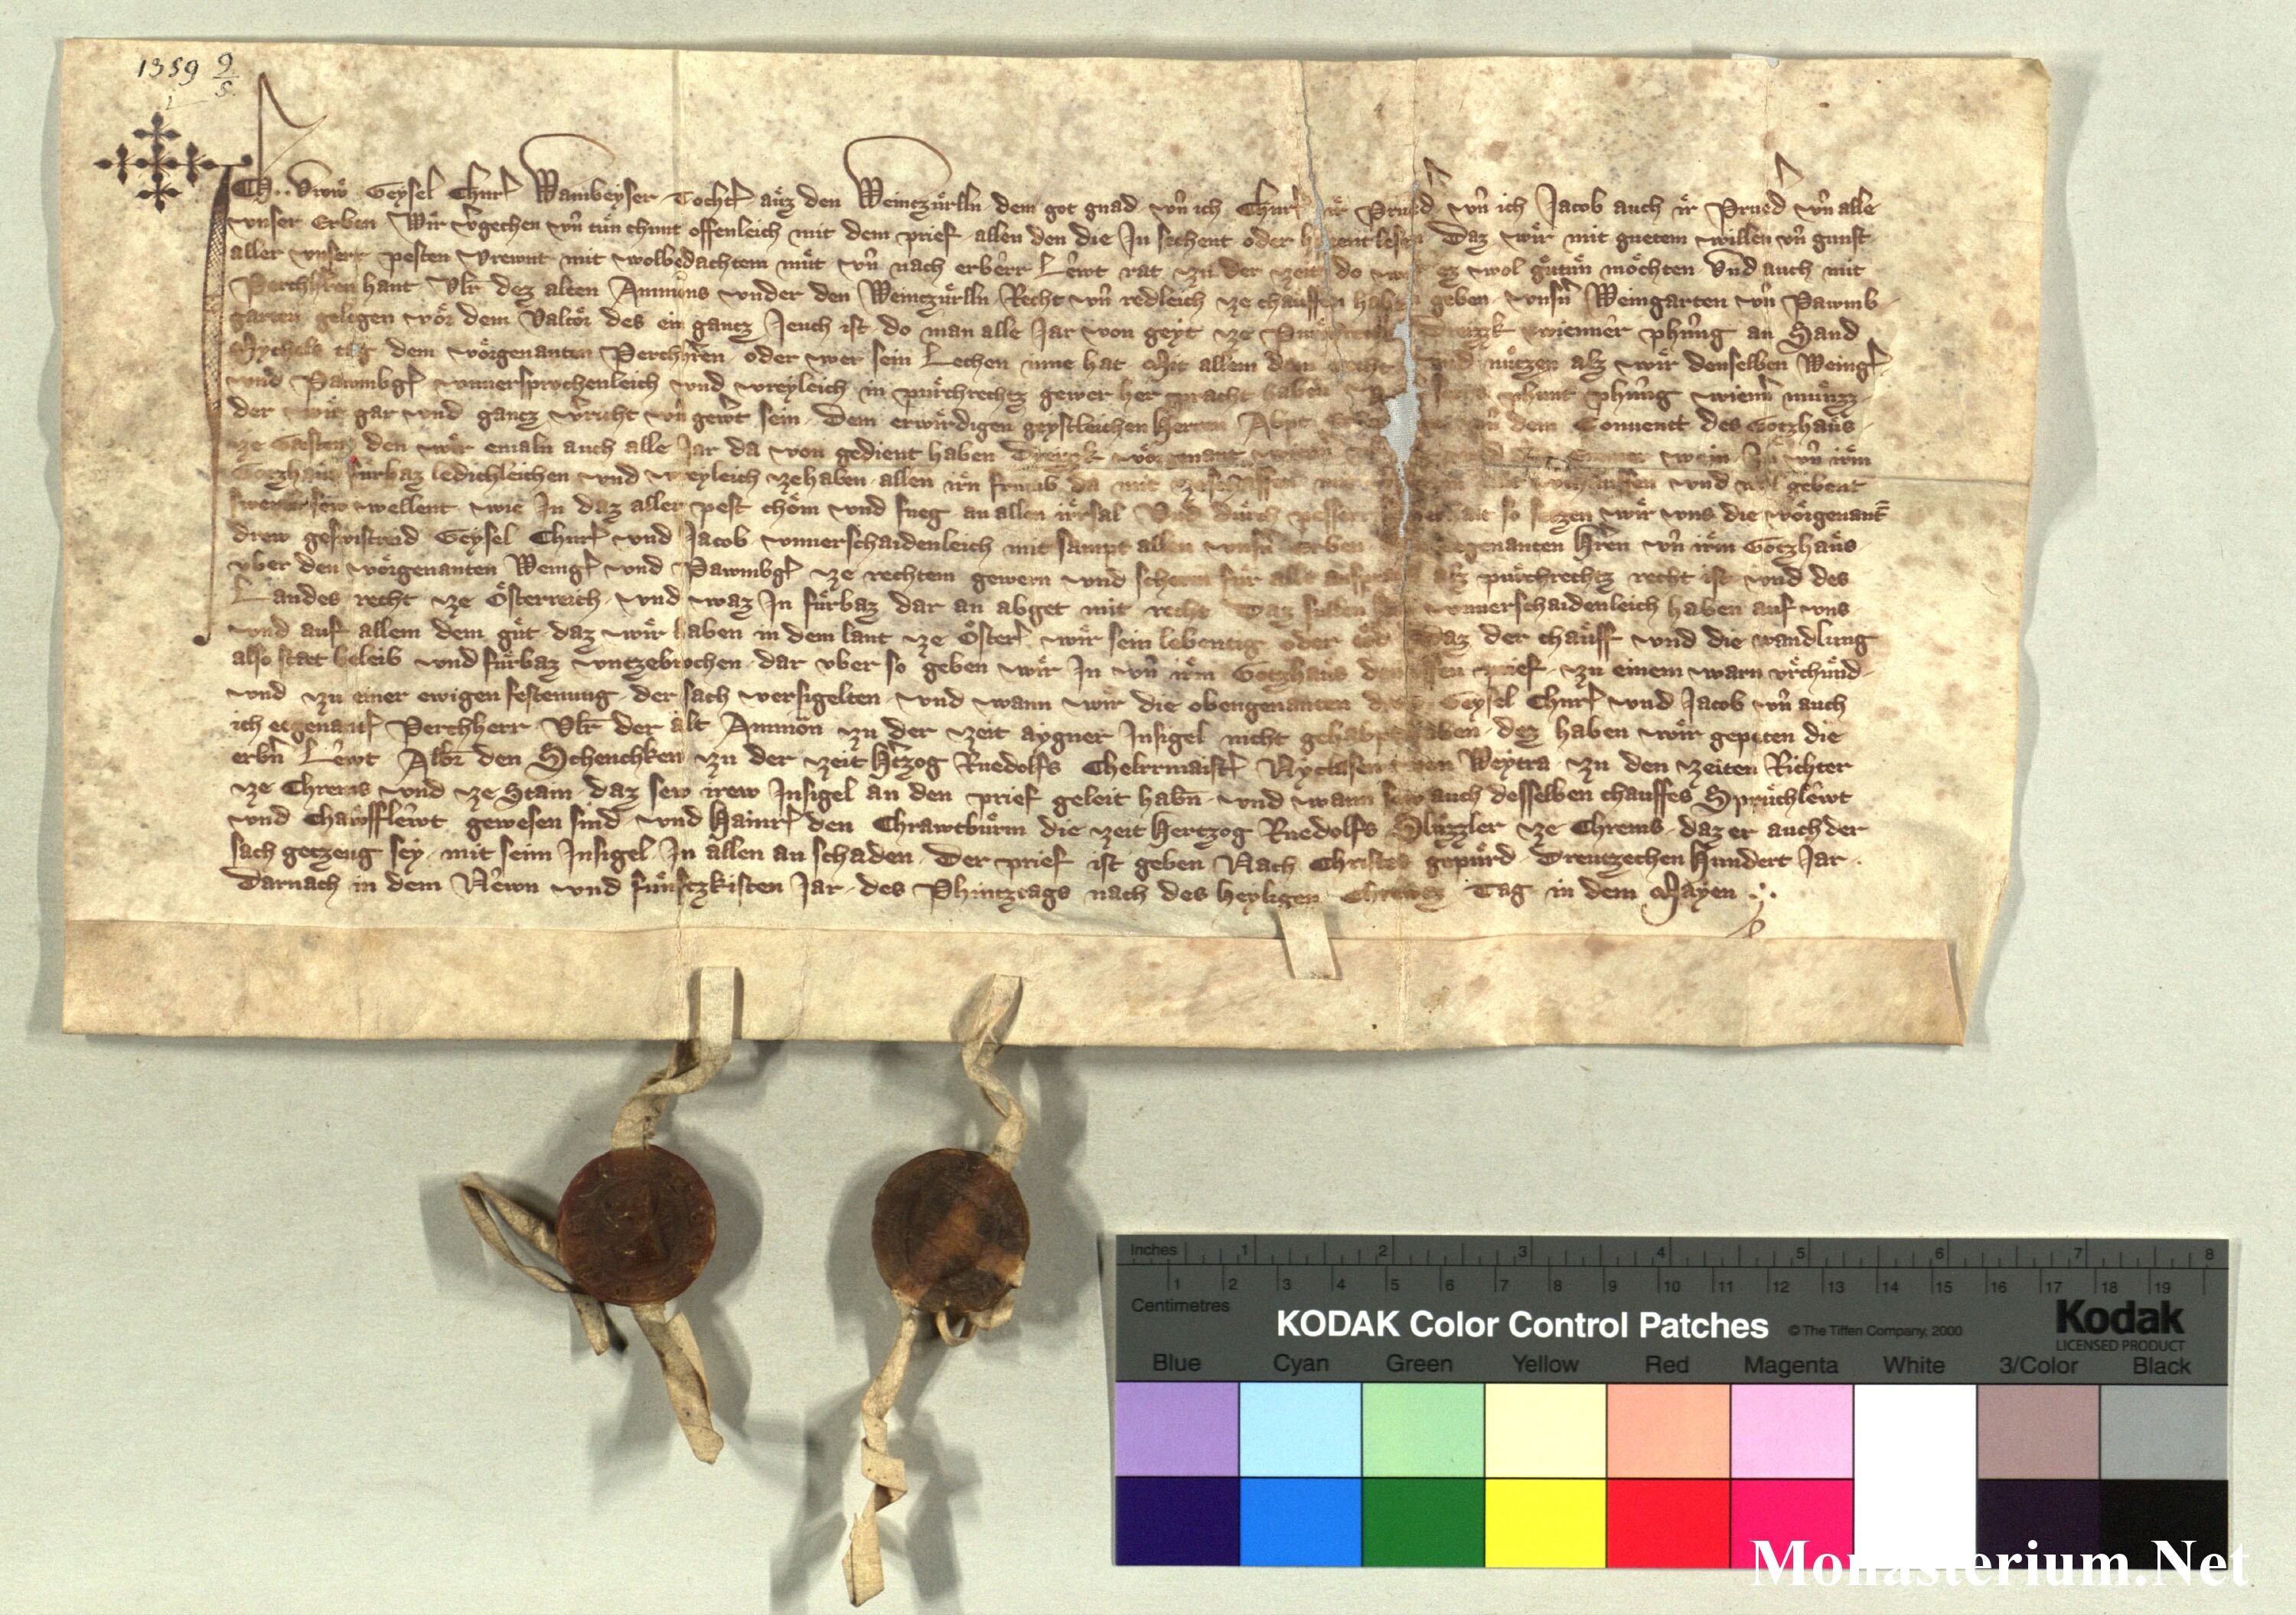 1359 9/5
ICh vrow Geysel Chunr Wambeyser Tochter aůz den Weinczürlln dem got gnad vn̄ ich Chunr ir Prued vn̄ ich Jacob auch ir Prued vn̄ alle
vnser Erben Wir v̄gechen vn̄ tůn chunt offenleich mit dem prief allen den die In sechent oder lesen Daz wir mit guetem willen vn̄ gunst
aller vnserr pesten vrewnt mit wolbedachtem můt vn̄ nach erberr Lewt rat zu der zeit do wol getůn möchten Vnd auch mit
Perchherren hant Vlr dez alten Ammans vnder den Weinczürlln Recht vn̄ redleich ze chauffen geben vnsn̄ Weingarten vn̄ Pawmb
garten gelegen vor dem Valtor des ein gancz Jeuch ist do man alle Jar von geyt ze Dreizk wienner phn̄ng an Sand
Mychels tag dem vorgenanten Perchherren oder wer sein Lechen inne hat Mit allem dem nuczen alz wir denselben Weingr
vnd Pawmbgr vnuersprochenleich vnd vreyleich in purchrechtz gewer her pracht haben phunt phn̄ng wienn̄ munzz
der wir gar vnd gancz v̄richt vn̄ gewert sein dem erwirdigen geystleichen Herren Abpt dem Conuent des Gotzhaus
ze den wir emaln auch alle Jar da von gedient haben Dreizk vorgenant wein In vn̄ irm
Gotzhaus fürbaz ledichleichen vnd vreyleich ze haben allen irn frumb da mit ze schaffen vnd gebent
swem sew wellent wie In daz aller pest chöm vnd fueg an allen irrsal Vnd durch pesserr so seczen wir vns die vorgenant
drew geswistreid Geysel Chunr vnd Jacob vnuerschaidenleich mit sampt allen vnsn̄ Erben Hrēn vn̄ irm Gotzhaus
vber den vorgenanten Weingr vnd Pawmbgr ze rechtem gewern vnd scherm für alle ansprach alz purchrechtz recht ist vnd des
Landes recht ze Österreich vnd waz In fürbaz dar an abget mit recht Daz sullen vnuerschaidenleich haben auf vns
vnd auf allem dem gůt daz wir haben in dem lant ze Österr wir sein lebentig oder tod daz der chauff vnd die wandlung
also stæt beleib vnd fürbaz vntzebrochen dar vber so geben wir In vn̄ irm Gotzhaus den prief zu einem warn vrchund
vnd zu einer ewigen festenung der sach versigelten vnd wann wir die obengenanten Geysel Chunr vnd Jacob vn̄ auch
ich egenant Perchherr Vlr der alt Amman zu der zeit aygner Insigel nicht gehabt haben dez haben wir gepeten die
erbn̄ Lewt Albr den Schenchken zu der zeit Hrczog Ruedolfs Chelrrmaistr Nyclasen von Weytra zu den zeiten Richter
ze Chrems vnd ze Stain daz sew irew Insigel an den prief geleit habn̄ vnd wann sew auch desselben chauffes Spruchlewt
vnd Chaufflewt gewesen sind vnd Hainr den Chrawtwurm die zeit Hertzog Ruedolfs Sluzzler ze Chrems daz er auch der
sach getzeug sey mit seim Insigel In allen an schaden Der prief ist geben Nach Christes gepurd Dreutzechen Hundert Jar
Darnach in dem Newn vnd funftzkisten Jar des Phintztags nach des heyligen Chrewtz Tag in dem Mayen
Inches 1 2 3 4 5 6 7 8
1 2 3 4 5 6 7 8 9 10 11 12 13 14 15 16 17 18 19
Centimetres
KODAK Color Control Patches © The Tiffen Company, 2000 Kodak
LICENSED PRODUCT
Blue Cyan Green Yellow Red Magenta White 3/Color Black
Monasterium.Net